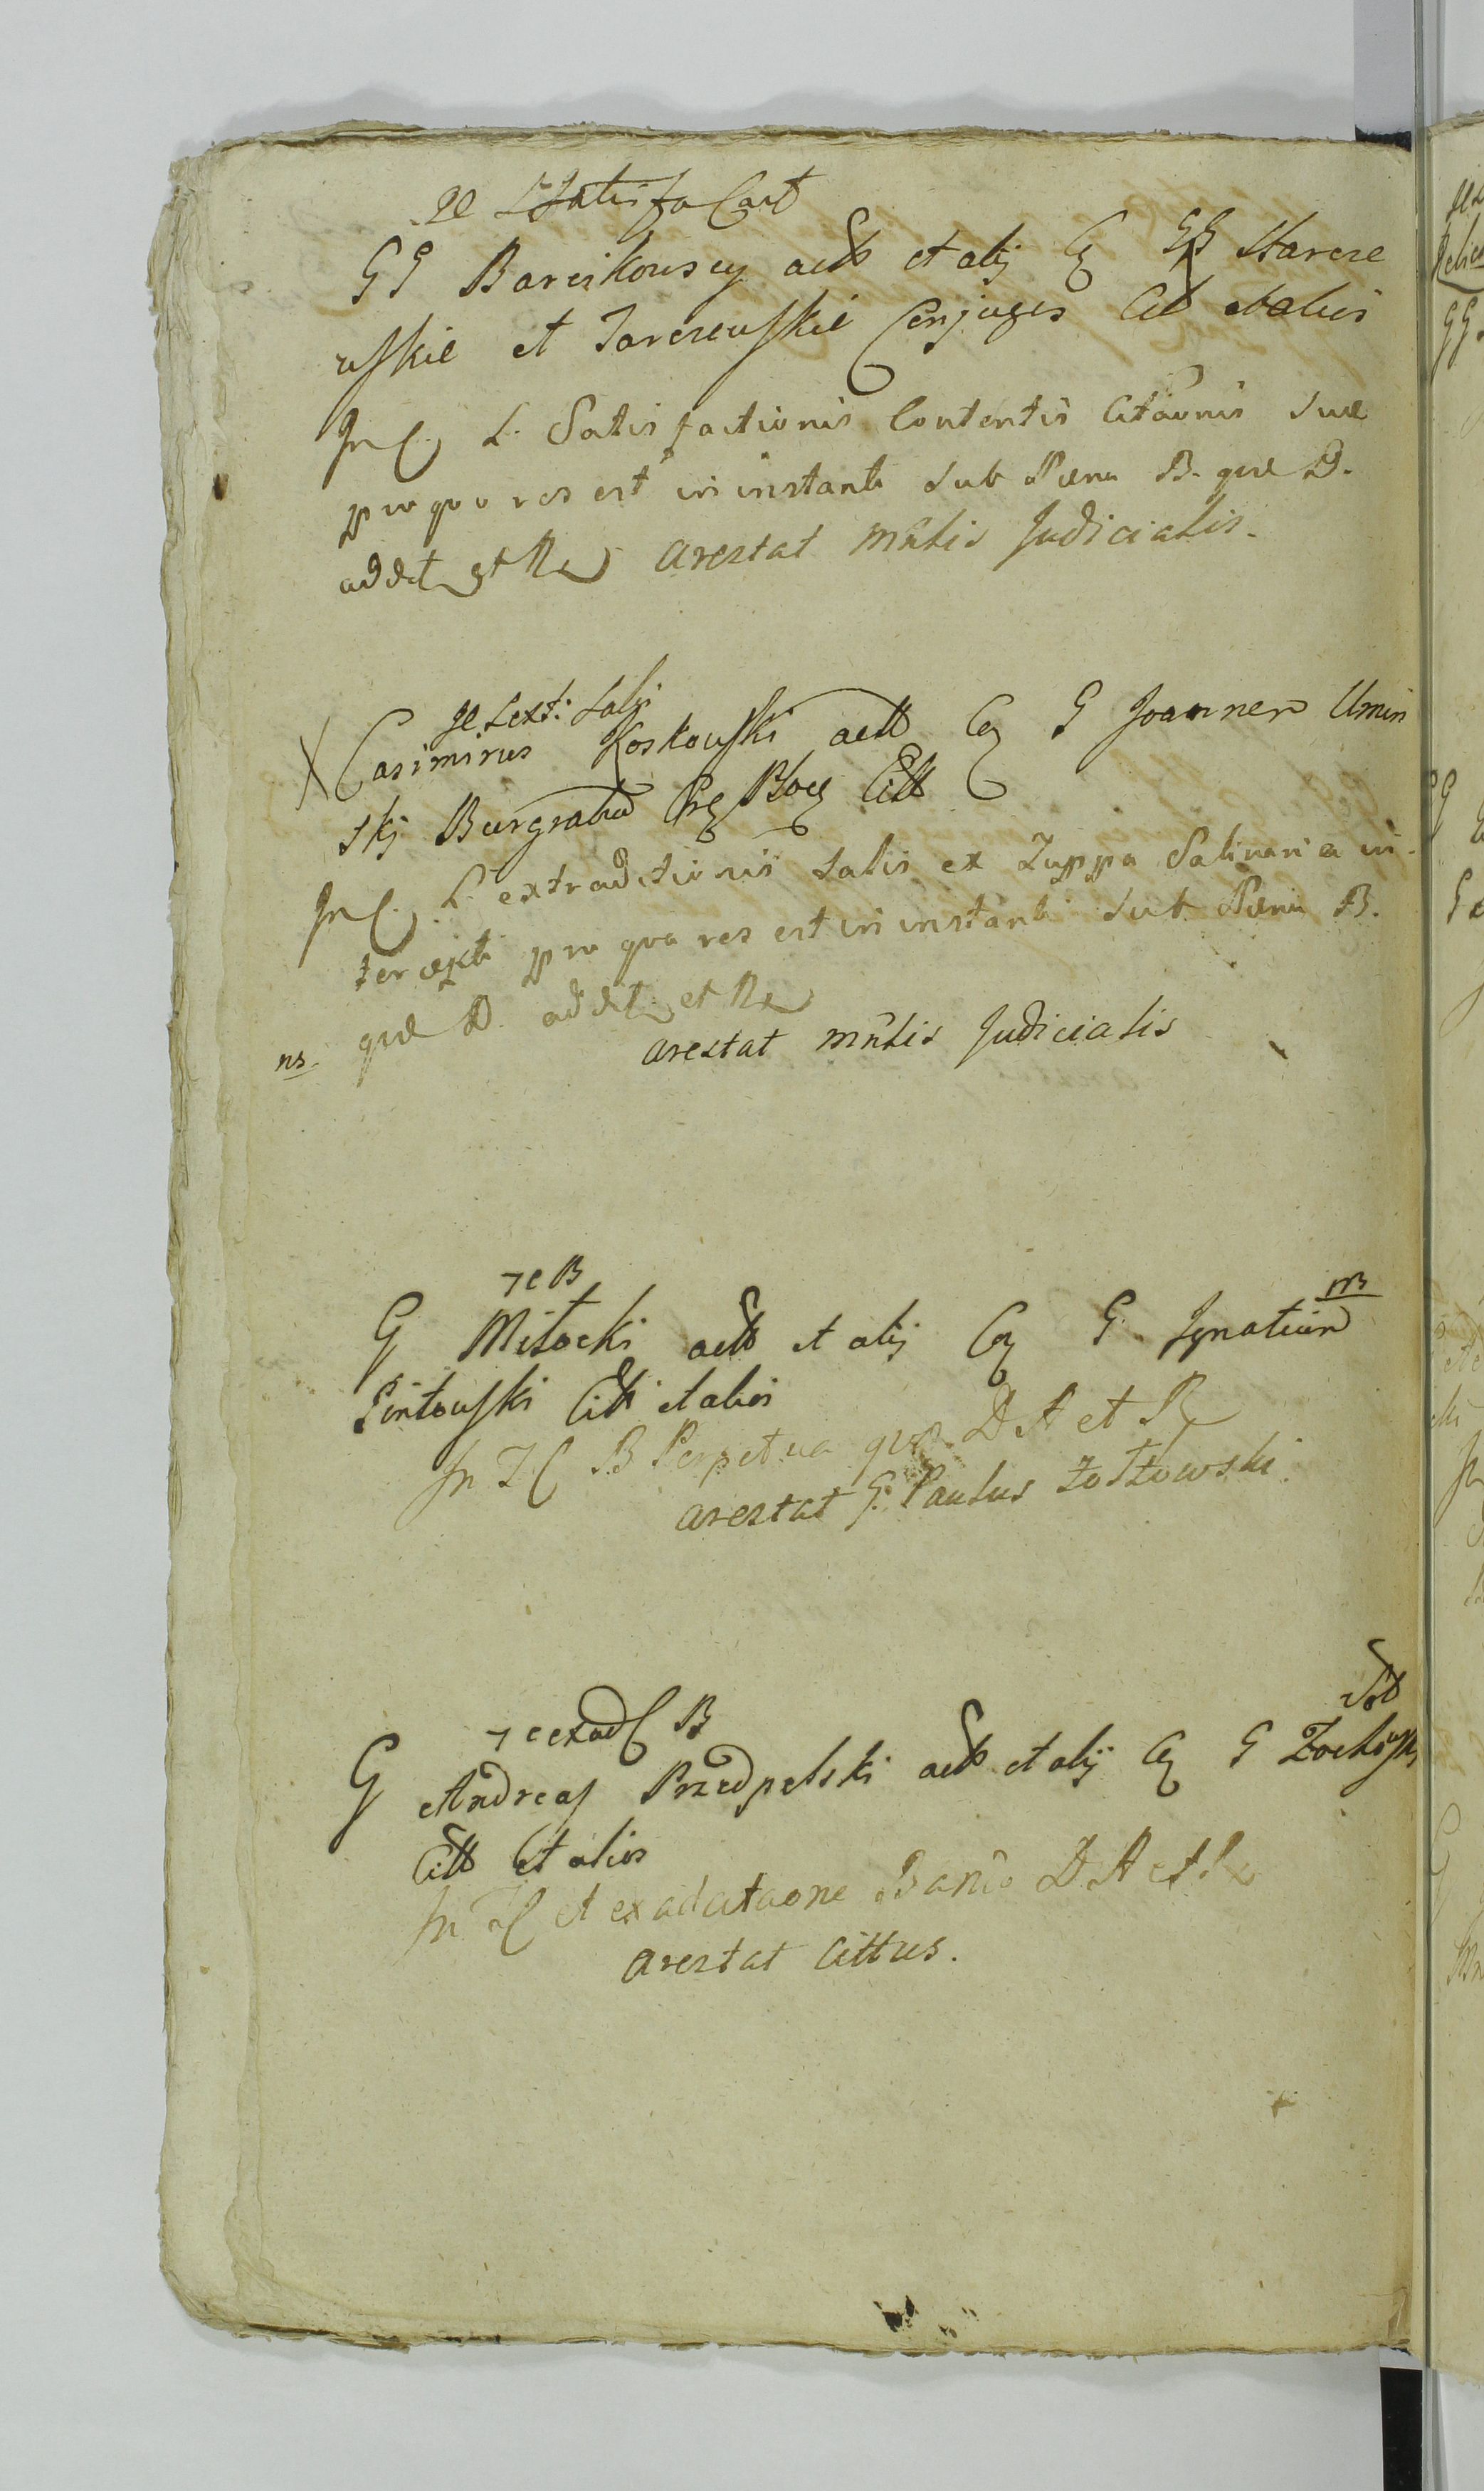 GG Barcikowscy act et alij Cq GG Starcze
wskie et Jarczewskie Conjuges Cit et alios
In C. L. Satisfactionis Contentis Citaonis suæ
pro quo res est in instanti sub Pæna B. quæ D.
addet et Re arestat mnlis Judicialis.
Je Lext: Salis
X Casimirus Koskowski actt Cq G Joannem Umin
skj Burgrabiu Crg Ploc Citt
In C. L. extraditionis Salis ex Zuppa Salinaria in
tercepti pro qua res est in instanti sub Pæna B.
ns. quæ D. addet et Re
arestat mnlis Judicialis
7 e B
m
G Miłocki actt et alij Cq G Ignatium
Piwtowski Citt et alios
In J C B Perpetua quæ D A et R
arestat G. Paulus Zołtowski.
7 e exad C B
G Andreas Przedpełski actt et alij Cq G Zochowski
Citt et alios
In J C et ex adcitaone Banio D A et R
arestat Cittus.